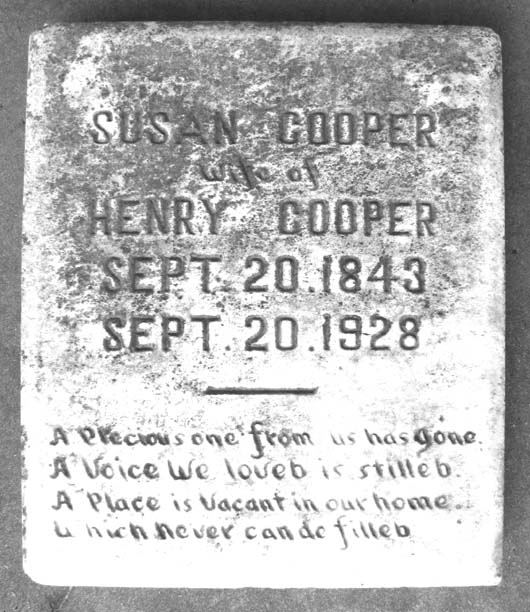 SUSAN COOPER
wife of
HENRY COOPER
SEPT. 20.1843
SEPT. 20.1928
A Precious one from us has gone.
A Voice We loveb is stilleb
A Place is Vacant in our home.
Which Never can de filleb